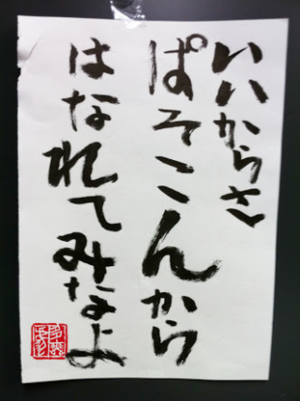 いいからさ
ぱそこんから
はなれてみなよ